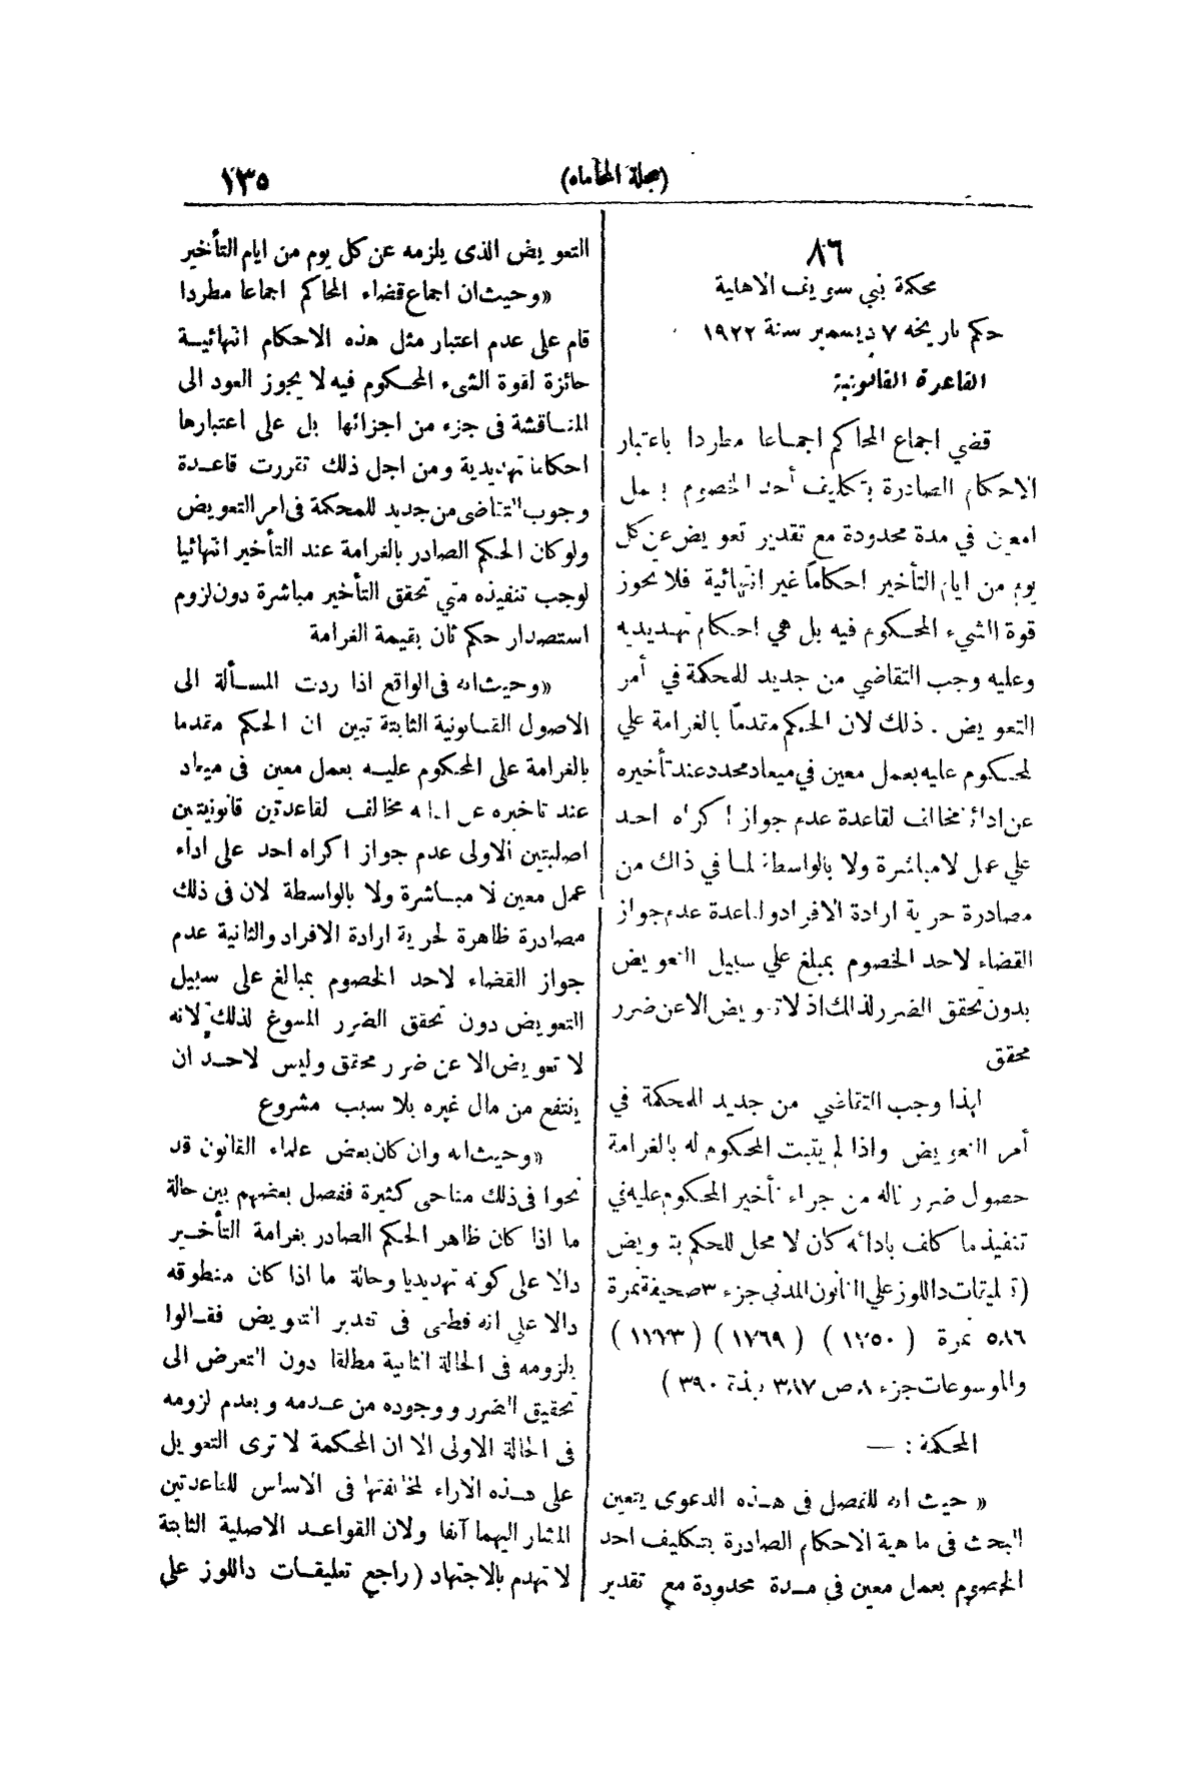 (مجلة المحاماه)
١٣٥
٨٦
محكمة بني سويف الاهلية
حكم تاريخه ٧ ديسمبر سنة ١٩٢٢
القاعدة القانونية
قضي اجماع المحاكم اجماعا مطردا باعتبار
الاحكام الصادرة بتكليف أحد الخصوم بعمل
امعين في مدة محدودة مع تقدير تعويض عن كل
يوم من ايام التأخير احكاماً غير انتهائية فلا تحوز
قوة الشيء المحكوم فيه بل هي احكام تهديديه
وعليه وجب التقاضي من جديد للمحكمة في أمر
التعويض . ذلك لان الحكم مقدماً بالغرامة علي
لمحكوم عليه بعمل معين في ميعاد محدد عند تأخيره
عن ادائه مخالف لقاعدة عدم جواز اكراه احد
علي عمل لا مباشرة ولا بالواسطة لما في ذلك من
مصادرة حرية ارادة الافراد ولقاعدة عدم جواز
القضاء لاحد الخصوم بمبلغ علي سبيل التعويض
بدون تحقق الضرر لذلك اذ لا تعويض الا عن ضرر
محقق
لهذا وجب التقاضي من جديد للمحكمة في
أمر التعويض واذا لم يثبت المحكوم له بالغرامة
حصول ضرر ناله من جراء تأخير المحكوم عليه في
تنفيذ ما كلف بادائه كان لا محل للحكم بتعويض
(تعليقات داللوز علي القانون المدني جزء ٣ صحيفة نمرة
٥٨٦ نمرة (١٧٥٠) (١٧٦٩) (١٧٧٣)
والموسوعات جزء ٨ ص ٣٨٧ نبذة ٣٩٠)
المحكمة : —
« حيث انه للفصل فى هذه الدعوى يتعين
البحث فى ماهية الاحكام الصادرة بتكليف احد
الخصوم بعمل معين فى مدة محدودة مع تقدير
التعويض الذى يلزمه عن كل يوم من ايام التأخير
«وحيث ان اجماع قضاء المحاكم اجماعا مطردا
قام على عدم اعتبار مثل هذه الاحكام انتهائية
حائزة لقوة الشىء المحكوم فيه لا يجوز العود الى
المناقشة فى جزء من اجزائها بل على اعتبارها
احكاما تهديدية ومن اجل ذلك تقررت قاعدة
وجوب التقاضى من جديد للمحكمة فى امر التعويض
ولو كان الحكم الصادر بالغرامة عند التأخير انتهائيا
لوجب تنفيذه متي تحقق التأخير مباشرة دون لزوم
استصدار حكم ثان بقيمة الغرامة
«وحيث انه فى الواقع اذا ردت المسألة الى
الاصول القانونية الثابتة تبين ان الحكم مقدما
بالغرامة على المحكوم عليه بعمل معين فى ميعاد
عند تاخيره عن ادائه مخالف لقاعدتين قانونيتين
اصليتين الاولى عدم جواز اكراه احد على اداء
عمل معين لا مباشرة ولا بالواسطة لان فى ذلك
مصادرة ظاهرة لحرية ارادة الافراد والثانية عدم
جواز القضاء لاحد الخصوم بمبالغ على سبيل
التعويض دون تحقق الضرر المسوغ لذلك لانه
لا تعويض الا عن ضرر محقق وليس لاحد ان
ينتفع من مال غيره بلا سبب مشروع
«وحيث انه وان كان بعض علماء القانون قد
نحوا فى ذلك مناحى كثيرة ففصل بعضهم بين حالة
ما اذا كان ظاهر الحكم الصادر بغرامة التأخير
دالا على كونه تهديديا وحالة ما اذا كان منطوقه
دالا علي انه قطعى فى تقدير التعويض فقالوا
بلزومه فى الحالة الثانية مطلقا دون التعرض الى
تحقيق الضرر ووجوده من عدمه وبعدم لزومه
فى الحالة الاولى الا ان المحكمة لا ترى التعويل
على هذه الاراء لمخالفتها فى الاساس للقاعدتين
المشار اليهما آنفا ولان القواعد الاصلية الثابتة
لا تهدم بالاجتهاد (راجع تعليقات داللوز على